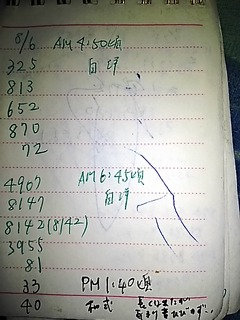 8/6 AM 4:50頃
325 自坪
813
652
870
72
4907 AM 6:45頃
8147 自坪
8142(8/42)
3955
81
33 PM 1:40頃
40 和式